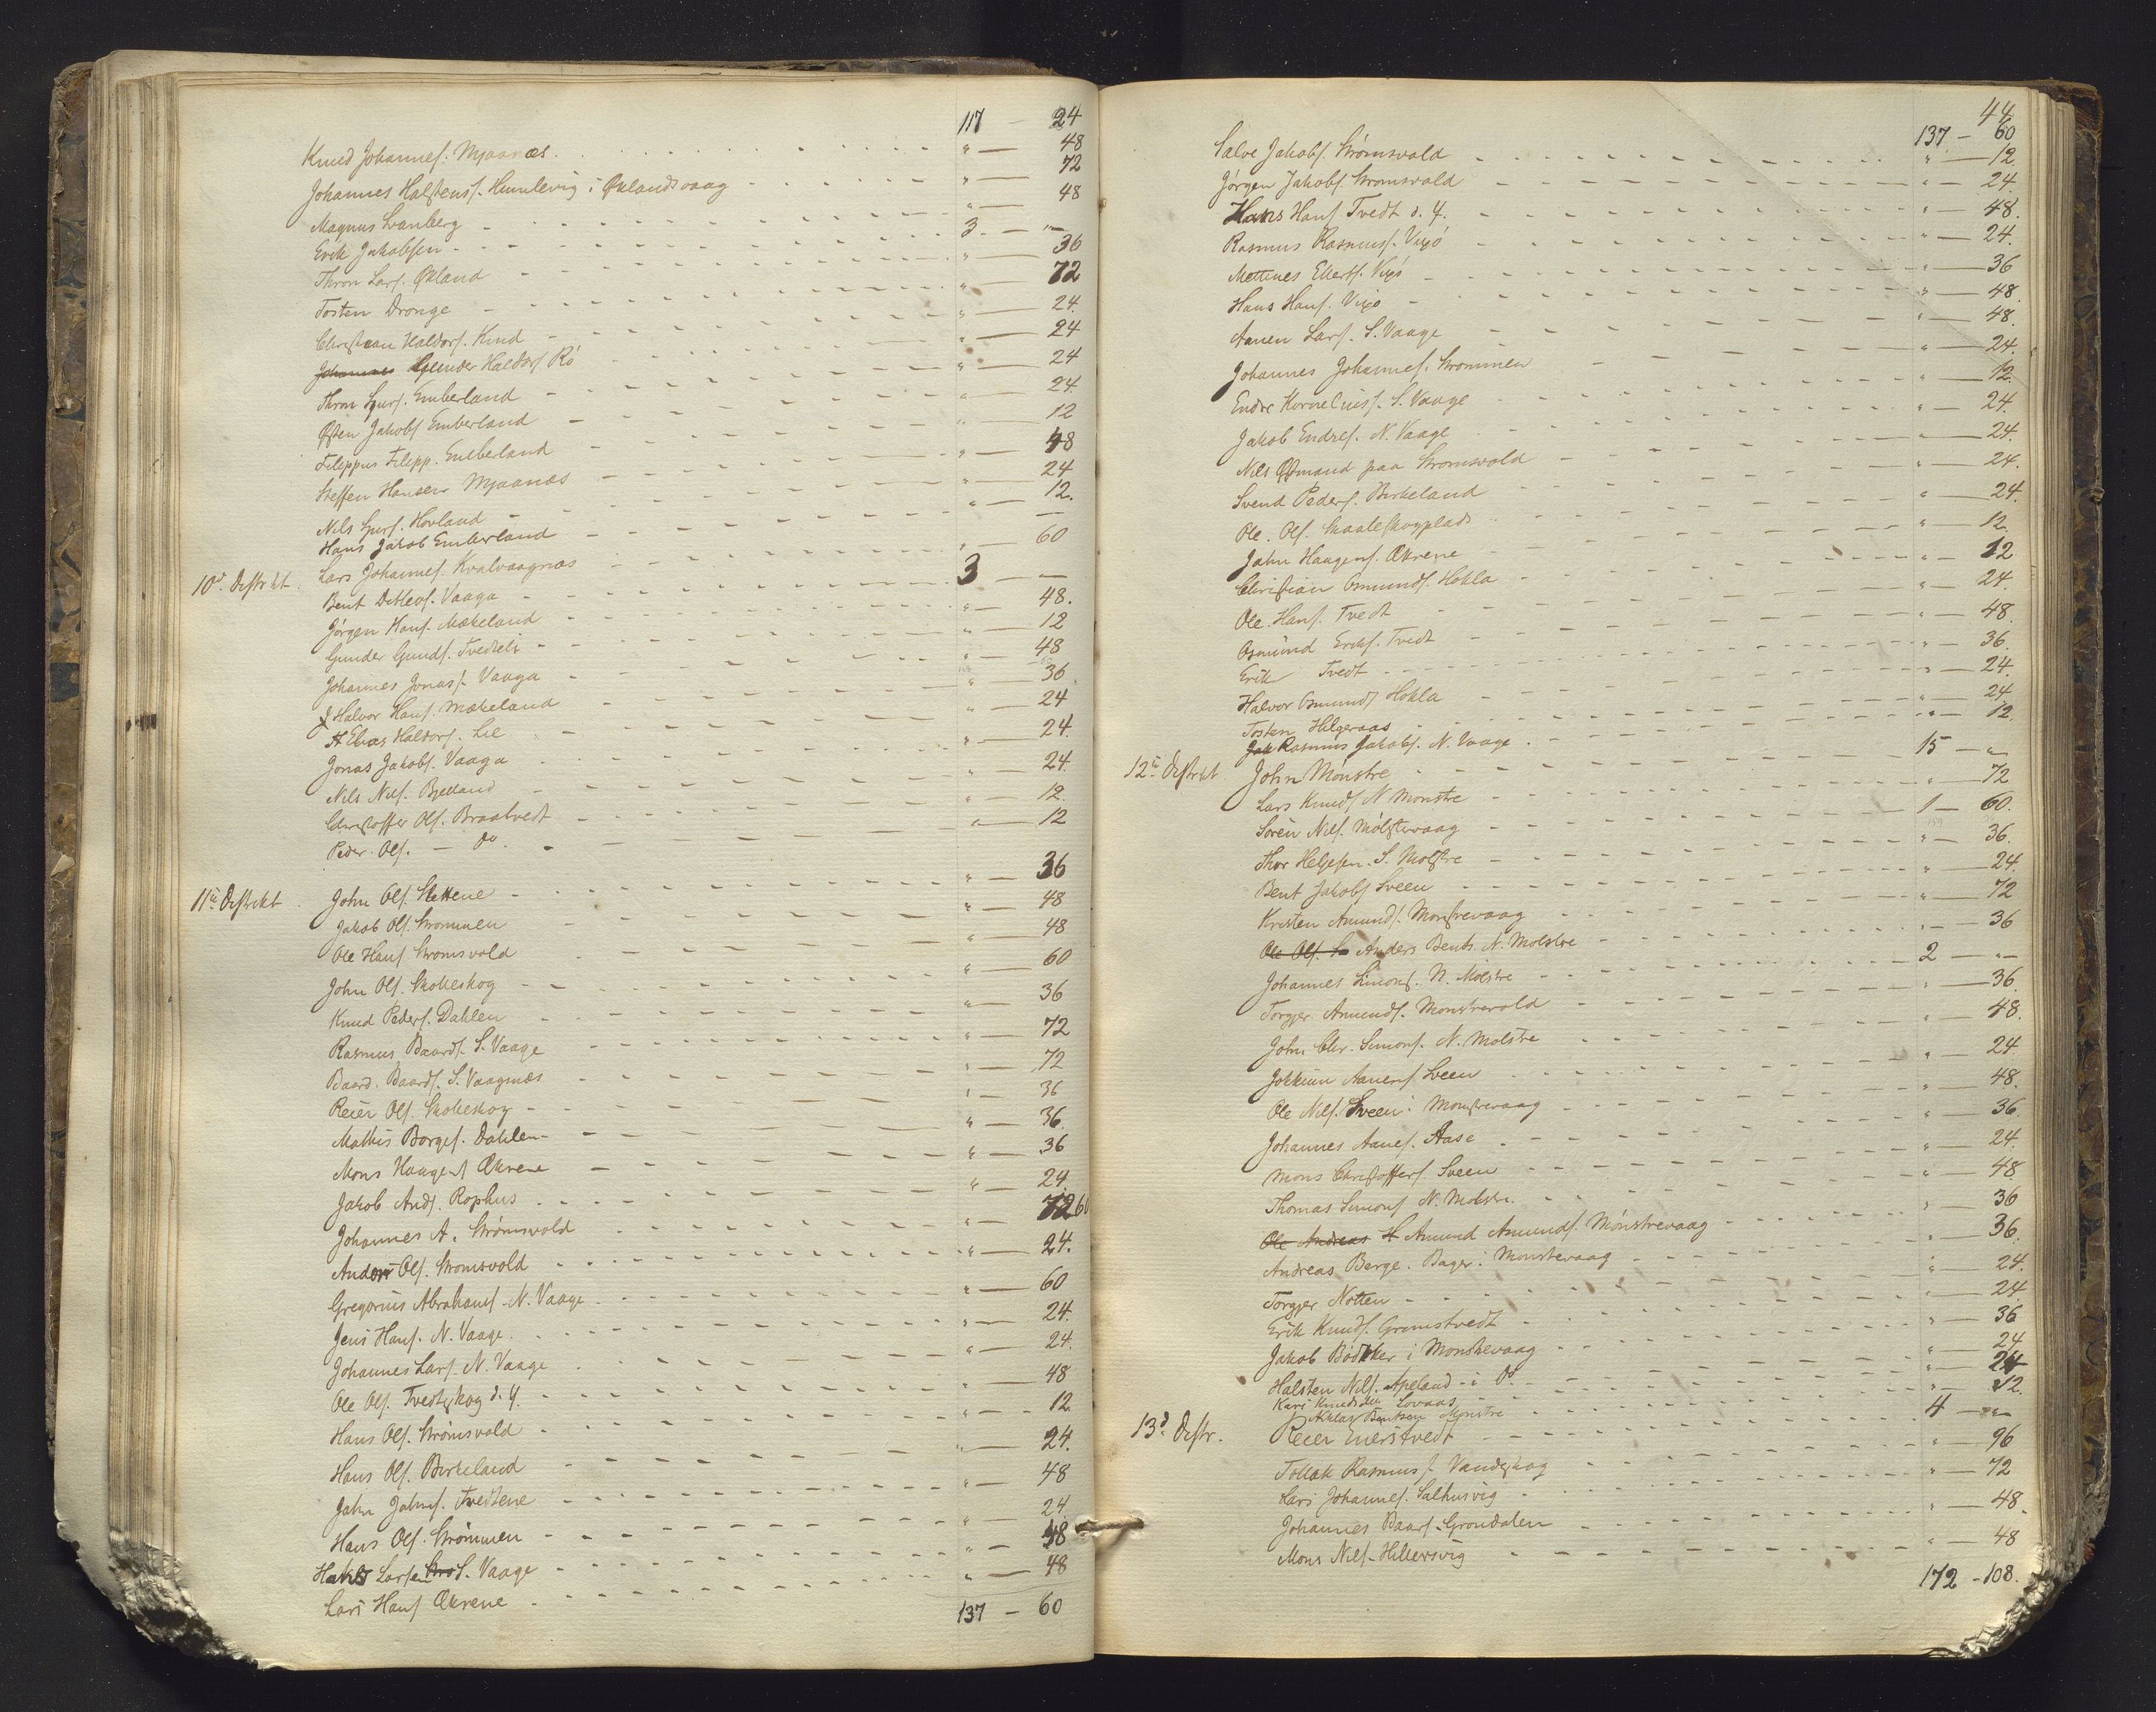 117 — 24
Knud Johannes. Mjaanæs. " — 48
Johannes Halstens. Humlevig i Øklandsvaag " — 72
Magnus Svanberg " — 48
Erik Jakobsen 3. — "
Thron Lars. Økland " — 36
Tosten Dronge " — 72
Christian Haldors. Kind " — 24.
Johannes Gunder Haldors. Rö " — 24
Thron Sjurs. Emberland " — 24
Østen Jakobs. Emberland " — 24.
Filippus Filipp. Emberland " — 12
Steffen Hansen Mjaanæs " — 48
Nils Sjurs. Hovland " — 24
Hans Jakob Emberland " — 12.
10d. Distrikt. Lars Johannes. Kvalvaagnæs " — 60
Bent Detleos. Vaaga 3 — —
Jörgen Hans. Mækeland " — 48.
Gunder Gunds. Tvedteli " — 12
Johannes Jonas. Vaaga " — 48
Halvor Hans. Mækeland " — 36
Elias Haldors. Lie " — 24
Jonas Jakobs. Vaaga " — 24.
Nils Nils. Bjelland " — 24.
Christoffer Ols. Braatvedt " — 12.
Peder. Ols. — do. " — 12
11te Distrikt. John Ols. Slettene " — 36
Jakob Ols. Strömmen " — 48
Ole Hans. Strömsvold " — 48
John Ols. Skokeskog " — 60
Knud Peders. Dahlen " — 36
Rasmus Baards. S. Vaage " — 72
Baard. Baards. S. Vaagsnæs " — 72
Reier Ols. Skokeskog " — 36
Mathis Borges. Dahlen " — 36.
Mons Haagens. Økrene " — 36
Jakob Ands. Rophus " — 24.
Johannes A. Strömsvold " — 72 60
Anders Ols. Strömsvold " — 24.
Gregorius Abrahams. N. Vaage " — 60
Jens Hans. N. Vaage. " — 24.
Johannes Lars. N. Vaage " — 24.
Ole Ols. Tvedtskog d. y. " — 48
Hans Ols. Strömsvold " — 12
Hans Ols. Birkeland " — 24.
John Johns. Tvedtene " — 48
Hans Ols. Strömmen " — 24
Lars. S. Vaage " — 48
Lars Hans. Økrene " — 48
137 — 60
44
137 — 60
Salve Jakobs. Strömsvold " — 12.
Jörgen Jakobs. Strömsvold " — 24.
Hans Hans. Tvedt d. y. " — 48.
Rasmus Rasmuss. Vixö " — 24.
Mettines Ellerts. Vixö " — 36
Hans Hans. Vixö " — 48.
Aanen Lars. S. Vaage " — 48.
Johannes Johannes. Strömmen " — 24.
Endre Kornelius. S. Vaage " — 12.
Jakob Endres. N. Vaage " — 24.
Nils Östmand paa Strömsvold " — 24.
Svend Peders. Birkeland " — 24.
Ole. Ols. Skaaleskogplads " — 24.
John Haagens. Økrene " — 12
Christian Osmunds. Hokla " — 12
Ole. Hans. Tvedt " — 24.
Osmund Eriks. Tvedt " — 48
Erik Tvedt " — 36
Halvor Osmunds. Hokla " — 24.
Tosten Helgeraas " — 24
Jak Rasmus Jakobs. N. Vaage " — 12.
12te Distrikt John Mönstre 15 — "
Lars Knuds. N. Mönstre " — 72
Sören Nils. Mölstrevaag 1 — 60.
Thor Helgesen. S. Molstre " — 36.
Bent Jakobs. Sveen " — 24.
Kristen Amunds. Monstrevaag " — 72
Ole Ols. Anders Bents. N. Molstre " — 36
Johannes Simons. N. Molstre 2 — "
Torger Amunds. Monstrevold " — 36.
John Chr. Simons. N. Molstre " — 48.
Jokkum Aanens. Sveen " — 24
Ole Nils. Sveen i Monstrevaag " — 48.
Johannes Aanes. Aase " — 36.
Mons Christoffers. Sveen " — 24.
Thomas Simons. N. Molstre. " — 48
Ole Andreas H Amund Amunds. Mönstrevaag " — 36
Andreas Berge. Bager i Monstrevaag " — 36.
Torger Notten " — 24.
Erik Knuds. Grimstvedt " — 24
Jakob Bödtker i Monstrevaag " — 36
Halsten Nils. Apeland i do " — 24
Kari Knudsdtr Lovaas " — 24
Niklas Bentsen Monstre " — 12.
13d. Distr. Reier Enerstvedt 4 — "
Tollak Rasmuss. Vandeskog " — 96
Lars Johannes. Salhusvig " — 72
Johannes Baars. Grondalen " — 48.
Mons Nils. Hillersvig " — 48
172 — 108.